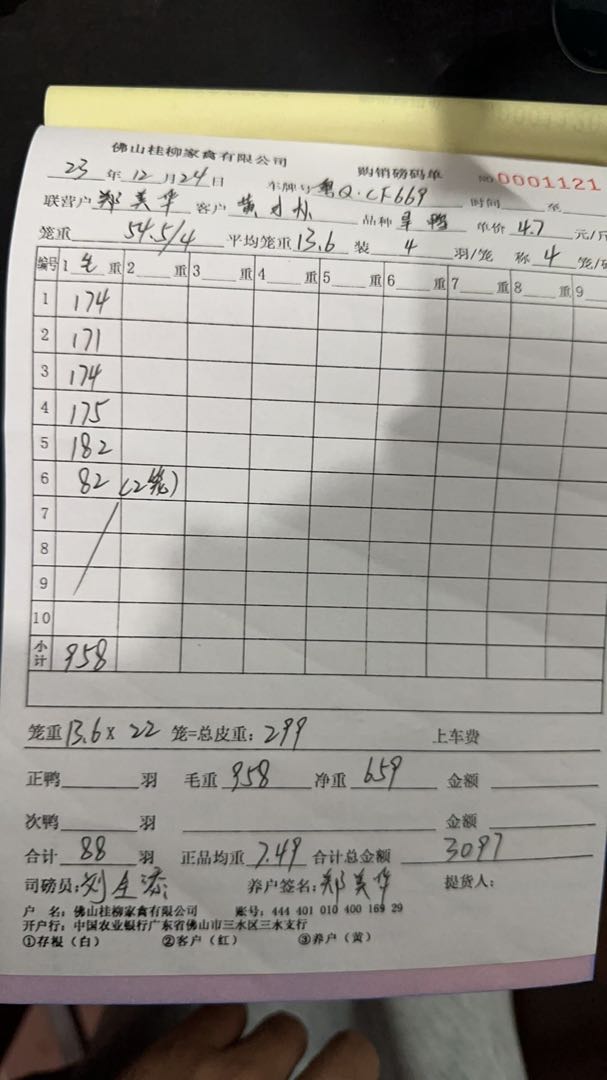 佛山桂柳家禽有限公司 购销磅码单 NO 0001121
23 年 12 月 24 日 车牌号 粤Q·CF669 时间 至
联营户 郑美华 客户 黄 品种 旱鸭 单价 4.7 元/斤
笼重 54.5/4 平均笼重 13.6 装 4 羽/笼 称 4 笼/
编号 1 毛 重 2 重 3 重 4 重 5 重 6 重 7 重 8 重 9
1 174
2 171
3 174
4 175
5 182
6 82 (2笼)
7
8
9
10
小计 958
笼重 13.6 × 22 笼=总皮重: 299 上车费
正鸭 羽 毛重 958 净重 659 金额
次鸭 羽 金额
合计 88 羽 正品均重 7.49 合计总金额 3097
司磅员: 刘 养户签名: 郑美华 提货人:
户 名: 佛山桂柳家禽有限公司 账号: 444 401 010 400 169 29
开户行: 中国农业银行广东省佛山市三水区三水支行
①存根(白) ②客户(红) ③养户(黄)